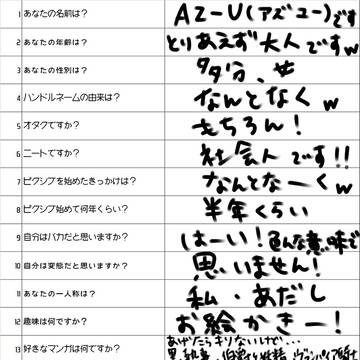 1 あなたの名前は？ AZ-U(アズユー)です
2 あなたの年齢は？ とりあえず大人ですw
3 あなたの性別は？ 多分、女
4 ハンドルネームの由来は？ なんとなくw
5 オタクですか？ もちろん！
6 ニートですか？ 社会人です!!
7 ピクシブを始めたきっかけは？ なんとなーくw
8 ピクシブ始めて何年くらい？ 半年くらい
9 自分はバカだと思いますか？ はーい！色んな意味で
10 自分は変態だと思いますか？ 思いません！
11 あなたの一人称は？ 私・あだし
12 趣味は何ですか？ お絵かきー！
13 好きなマンガは何ですか？ あげだらきりないけど・・・
黒執事、